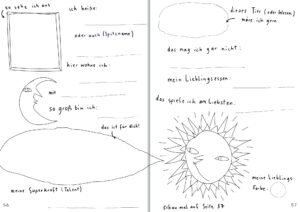 so sehe ich aus
ich heiße:
oder auch (Spitzname)
hier wohne ich:
mit
so groß bin ich:
das ist für dich!
meine Superkraft (Talent)
56
dieses Tier (oder Wesen)
wäre ich gern.
das mag ich gar nicht:
mein Lieblingsessen:
das spiele ich am liebsten:
meine Lieblings
farbe:
schau mal auf Seite 37
57